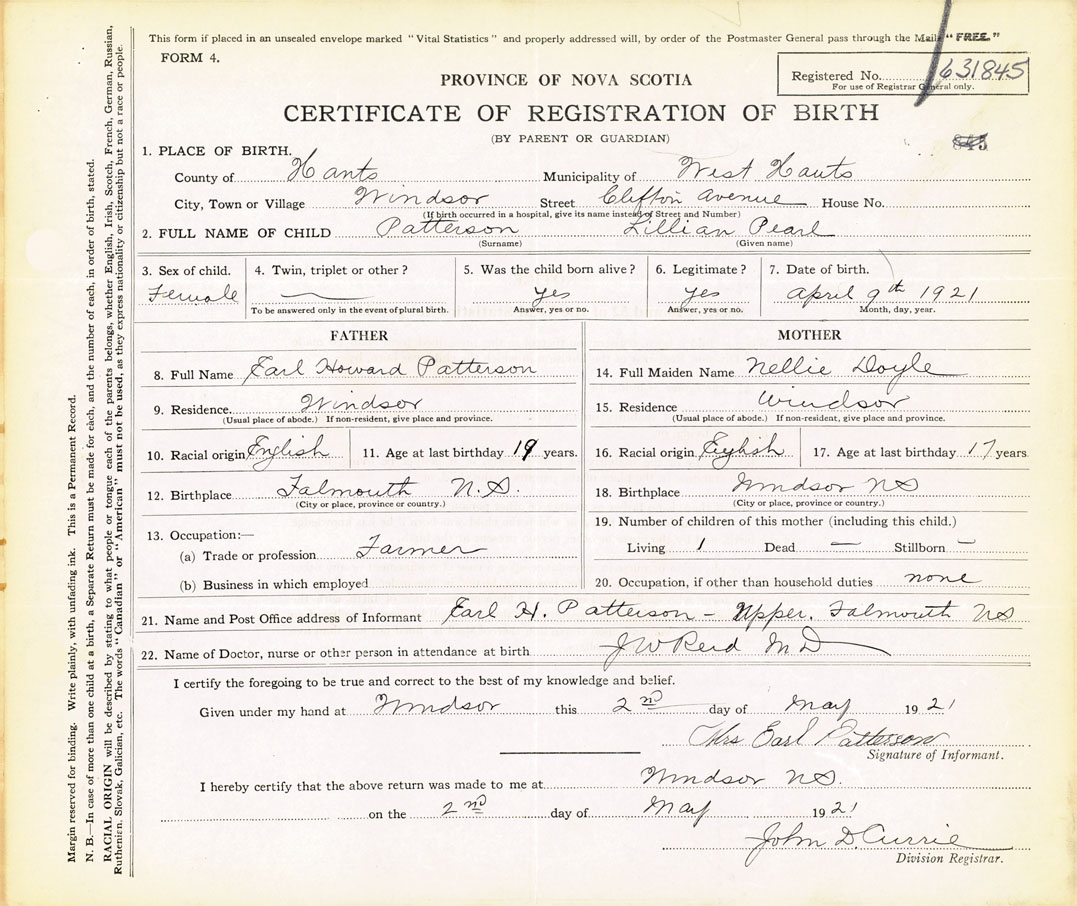 This form if placed in an unsealed envelope marked "Vital Statistics" and properly addressed will, by order of the Postmaster General pass through the Mails "FREE."
FORM 4.
PROVINCE OF NOVA SCOTIA
Registered No. 631845
For use of Registrar General only.
CERTIFICATE OF REGISTRATION OF BIRTH
(BY PARENT OR GUARDIAN)
845
1. PLACE OF BIRTH.
County of Hants Municipality of West Hants
City, Town or Village Windsor Street Clifton Avenue House No.
(If birth occurred in a hospital, give its name instead of Street and Number)
2. FULL NAME OF CHILD Patterson Lillian Pearl
(Surname) (Given name)
3. Sex of child. 4. Twin, triplet or other? 5. Was the child born alive? 6. Legitimate? 7. Date of birth.
Female — yes yes April 9th 1921
To be answered only in the event of plural birth. Answer, yes or no. Answer, yes or no. Month, day, year.
FATHER
8. Full Name Earl Howard Patterson
9. Residence. Windsor
(Usual place of abode.) If non-resident, give place and province.
10. Racial origin English 11. Age at last birthday 19 years.
12. Birthplace Falmouth N.S.
(City or place, province or country.)
13. Occupation:—
(a) Trade or profession Farmer
(b) Business in which employed
MOTHER
14. Full Maiden Name Nellie Doyle
15. Residence Windsor
(Usual place of abode.) If non-resident, give place and province.
16. Racial origin English 17. Age at last birthday 17 years.
18. Birthplace Windsor NS
(City or place, province or country.)
19. Number of children of this mother (including this child.)
Living 1 Dead — Stillborn —
20. Occupation, if other than household duties none
21. Name and Post Office address of Informant Earl H. Patterson - Upper Falmouth NS
22. Name of Doctor, nurse or other person in attendance at birth J W Reid M D
I certify the foregoing to be true and correct to the best of my knowledge and belief.
Given under my hand at Windsor this 2nd day of May 1921
Mrs Earl Patterson
Signature of Informant.
I hereby certify that the above return was made to me at Windsor NS.
on the 2nd day of May 1921
John D. Currie
Division Registrar.
Margin reserved for binding. Write plainly, with unfading ink. This is a Permanent Record.
N. B.—In case of more than one child at a birth, a Separate Return must be made for each, and the number of each, in order of birth, stated.
RACIAL ORIGIN will be described by stating to what people or tongue each of the parents belongs, whether English, Irish, Scotch, French, German, Russian,
Ruthenien, Slovak, Galician, etc. The words "Canadian" or "American" must not be used, as they express nationality or citizenship but not a race or people.